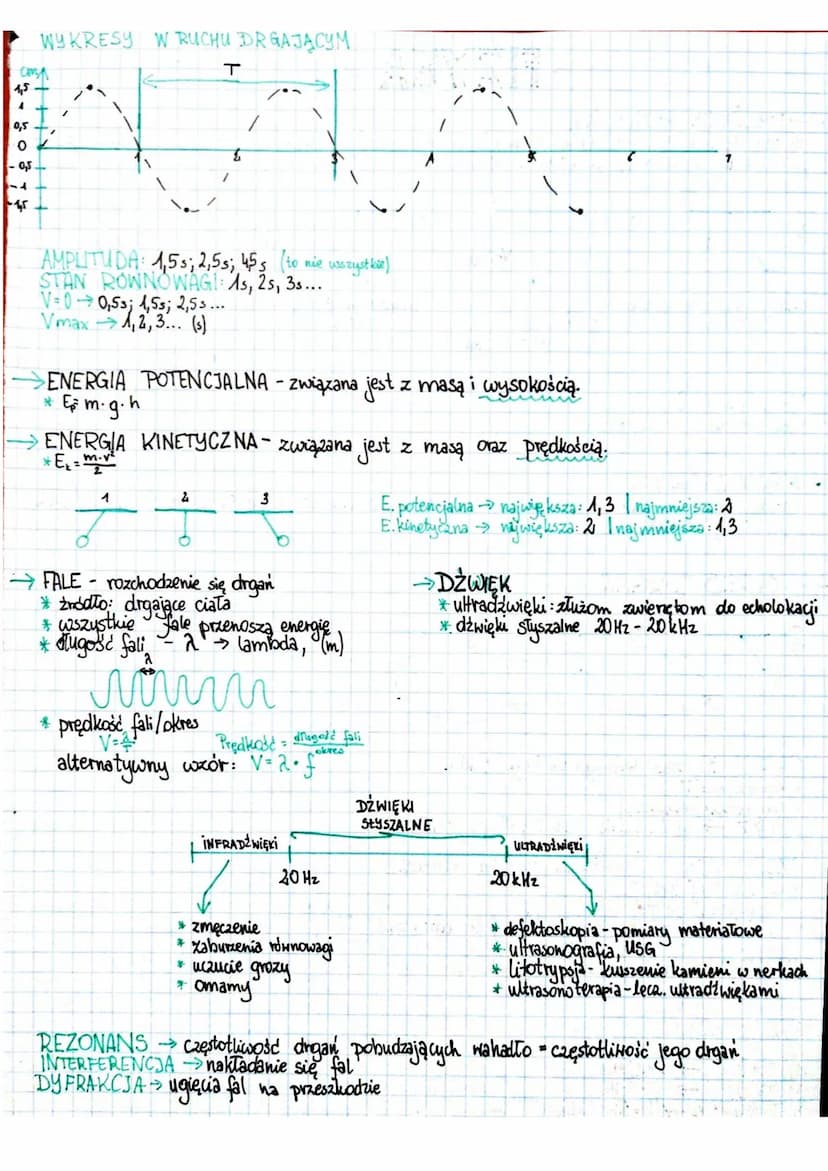 WYKRESY W RUCHU DRGAJĄCYM
cm
T
1,5
1
0,5
0
-0,5
-1
-1,5
1 2 3 4 5 6 7
AMPLITUDA: 1,5s; 2,5s; 4,5s (to nie wszystkie)
STAN RÓWNOWAGI: 1s, 2s, 3s...
V=0 → 0,5s; 1,5s; 2,5s...
Vmax → 1,2,3... (s)
→ ENERGIA POTENCJALNA - związana jest z masą i wysokością.
* Ep= m·g·h
→ ENERGIA KINETYCZNA - związana jest z masą oraz prędkością.
* Ek = m·v²/2
1 2 3
E. potencjalna → największa: 1,3 | najmniejsza: 2
E. kinetyczna → największa: 2 | najmniejsza: 1,3
→ FALE - rozchodzenie się drgań
* źródło: drgające ciała
* wszystkie fale przenoszą energię
* długość fali - λ → lambda, (m)
λ
* prędkość fali/okres
V=λ/T Prędkość = długość fali/okres
alternatywny wzór: V= λ • f
→ DŹWIĘK
* ultradźwięki: służom zwierętom do echolokacji
* dźwięki słyszalne 20Hz - 20kHz
DŹWIĘKI
SŁYSZALNE
INFRADŹWIĘKI
ULTRADŹWIĘKI
20 Hz
20 kHz
* zmęczenie
* zaburzenia równowagi
* uczucie grozy
* omamy
* defektoskopia - pomiary materiałowe
* ultrasonografia, USG
* litotrypsja - kruszenie kamieni w nerkach
* ultrasonoterapia - lecz. ultradźwiękami
REZONANS → częstotliwość drgań pobudzających wahadło = częstotliwość jego drgań
INTERFERENCJA → nakładanie się fal
DYFRAKCJA → ugięcia fal na przeszkodzie